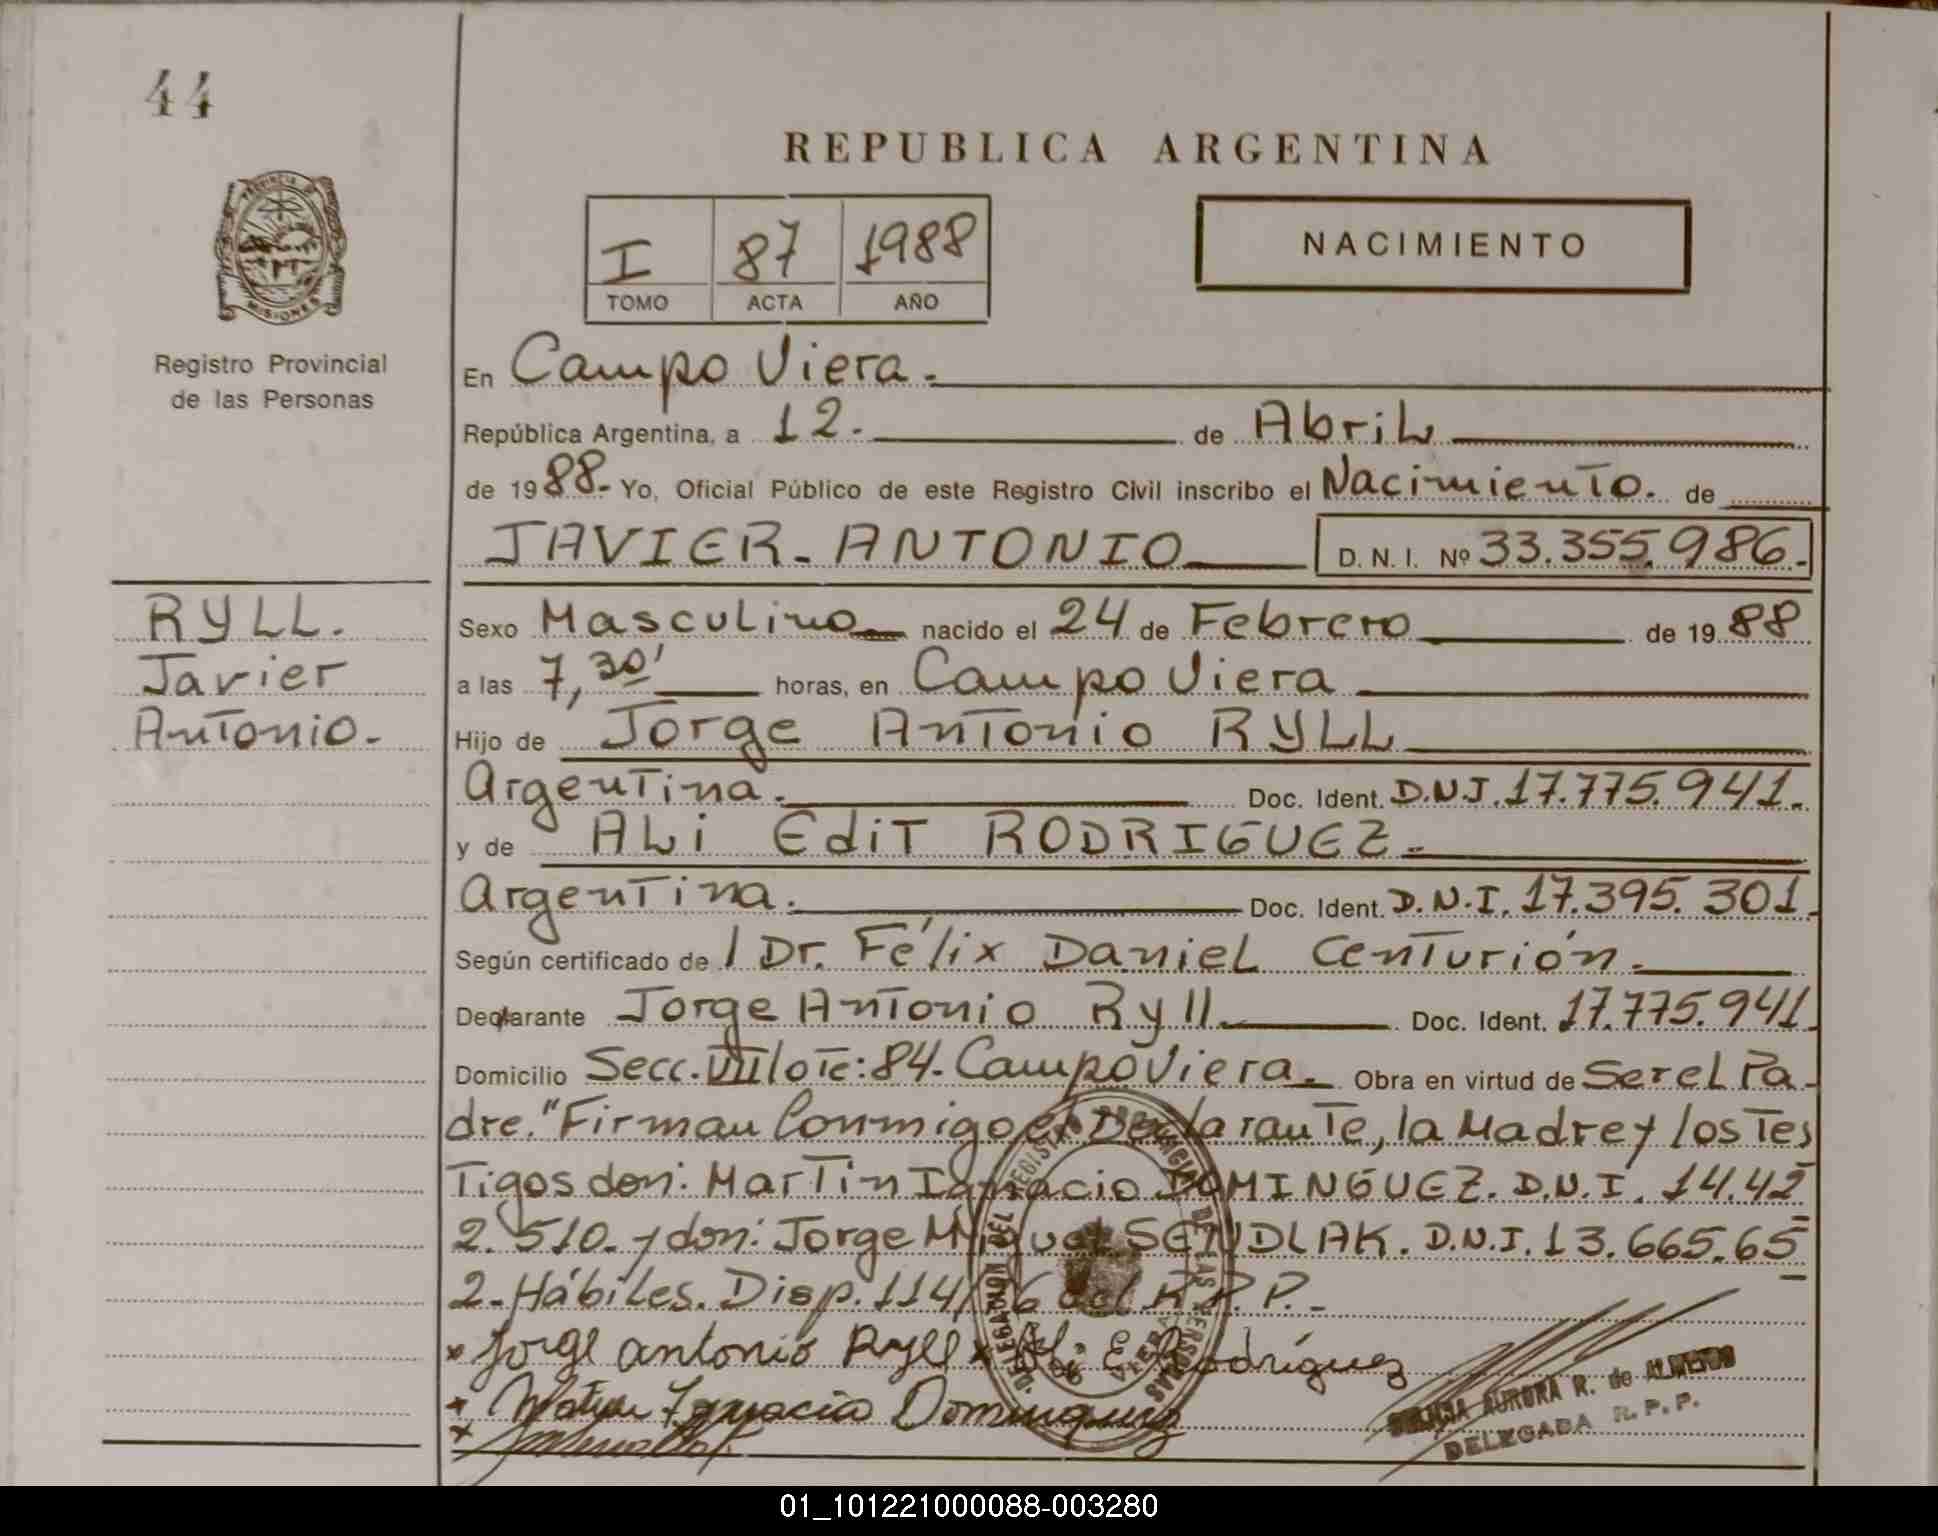 44
REPUBLICA ARGENTINA
PROVINCIA DE
MISIONES
I 87 1988
TOMO ACTA AÑO
NACIMIENTO
Registro Provincial
de las Personas
En Campo Viera.
República Argentina, a 12. de Abril
de 1988. Yo, Oficial Público de este Registro Civil inscribo el Nacimiento. de
JAVIER ANTONIO D. N. I. Nº 33.355.986.
RYLL.
Javier
Antonio.
Sexo Masculino nacido el 24 de Febrero de 1988
a las 7,30' horas, en Campo Viera
Hijo de Jorge Antonio RYLL
Argentina. Doc. Ident. D.N.I. 17.775.941.
y de ALi EdiT RODRIGUEZ.
Argentina. Doc. Ident. D.N.I. 17.395.301.
Según certificado de l Dr. Félix Daniel Centurión.
Declarante Jorge Antonio Ryll. Doc. Ident. 17.775.941
Domicilio Secc. VII lote: 84. Campo Viera. Obra en virtud de Ser el Pa-
dre." Firman Conmigo el Declarante, la Madre y los Tes
Tigos don: Martin Ignacio DOMINGUEZ. D.N.I. 14.42
2.510. y don: Jorge Miguel SENDLAK. D.N.I. 13.665.65
2. Hábiles. Disp. 114/86 del R.P.P.
Jorge antonio Ryll x Ali E Rodríguez
Ignacio Dominguez
AURORA R. de
DELEGADA R. P. P.
01_101221000088-003280